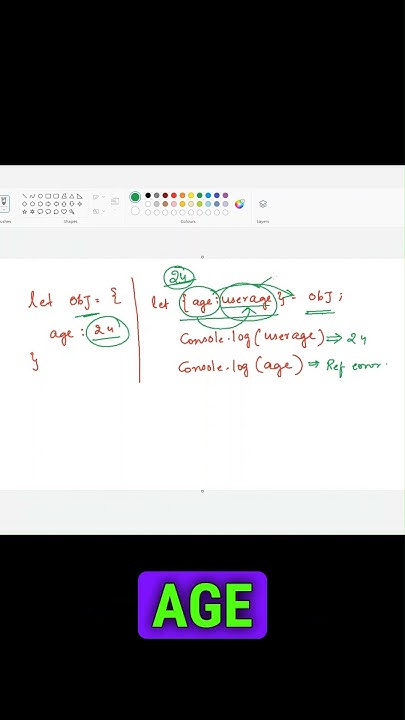 Shapes
Colours
Layers
24
let obJ = {
age : 24
}
let { age : userage } = obJ ;
Console.log(userage) ⇒ 24
Console.log(age) ⇒ Ref error.
AGE